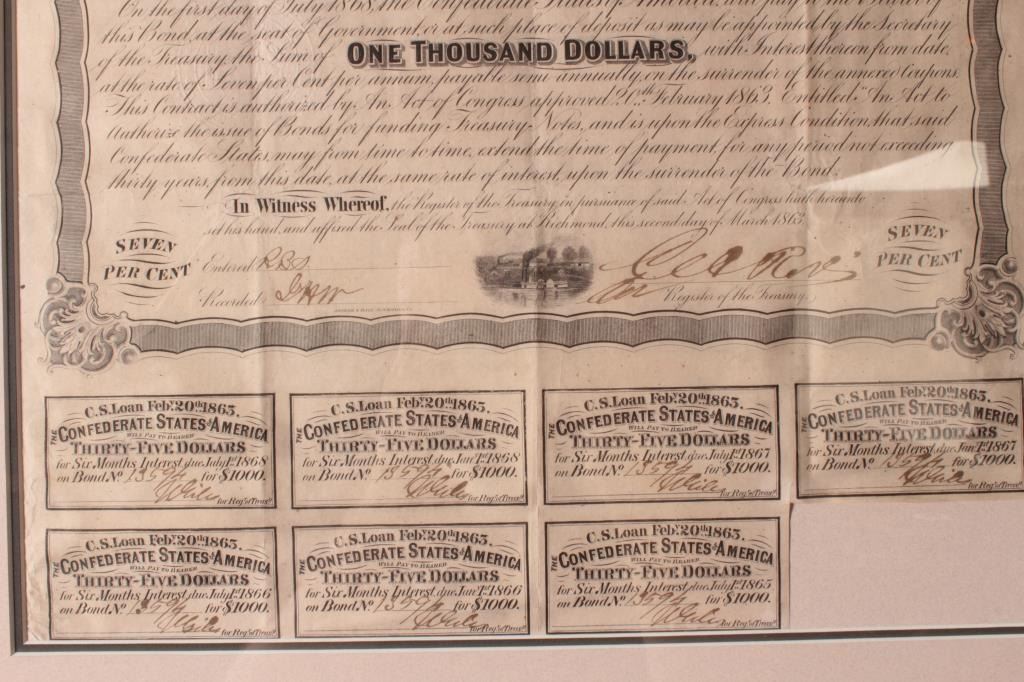 On the first day of July 1868, the Confederate States of America, will pay to the Bearer of
this Bond, at the seat of Government, or at such place of deposit as may be appointed by the Secretary
of the Treasury, the Sum of ONE THOUSAND DOLLARS, with Interest thereon from date,
at the rate of Seven per Cent per annum, payable semi-annually, on the surrender of the annexed Coupons.
This Contract is authorized by An Act of Congress approved 20th February 1863. Entitled "An Act to
Authorize the issue of Bonds for funding Treasury Notes, and is upon the Express Condition that said
Confederate States, may from time to time, extend the time of payment, for any period not exceeding
thirty years, from this date, at the same rate of interest, upon the surrender of the Bond.
In Witness Whereof, the Register of the Treasury, in pursuance of said Act of Congress hath hereunto
set his hand, and affixed the Seal of the Treasury at Richmond, this second day of March 1863.
SEVEN PER CENT
Entered
Recorded
Register of the Treasury.
SEVEN PER CENT
C.S. Loan Feby. 20th 1863.
THE CONFEDERATE STATES OF AMERICA
WILL PAY TO BEARER
THIRTY-FIVE DOLLARS
for Six Months Interest, due July 1st 1868
on Bond No. for $1000.
for Reg'r of Treasy.
C.S. Loan Feby. 20th 1863.
THE CONFEDERATE STATES OF AMERICA
WILL PAY TO BEARER
THIRTY-FIVE DOLLARS
for Six Months Interest, due Jany 1st 1868
on Bond No. for $1000.
for Reg'r of Treasy.
C.S. Loan Feby. 20th 1863.
THE CONFEDERATE STATES OF AMERICA
WILL PAY TO BEARER
THIRTY-FIVE DOLLARS
for Six Months Interest, due July 1st 1867
on Bond No. for $1000.
for Reg'r of Treasy.
C.S. Loan Feby. 20th 1863.
THE CONFEDERATE STATES OF AMERICA
WILL PAY TO BEARER
THIRTY-FIVE DOLLARS
for Six Months Interest, due Jany 1st 1867
on Bond No. for $1000.
for Reg'r of Treasy.
C.S. Loan Feby. 20th 1863.
THE CONFEDERATE STATES OF AMERICA
WILL PAY TO BEARER
THIRTY-FIVE DOLLARS
for Six Months Interest, due July 1st 1866
on Bond No. for $1000.
for Reg'r of Treasy.
C.S. Loan Feby. 20th 1863.
THE CONFEDERATE STATES OF AMERICA
WILL PAY TO BEARER
THIRTY-FIVE DOLLARS
for Six Months Interest, due Jany 1st 1866
on Bond No. for $1000.
for Reg'r of Treasy.
C.S. Loan Feby. 20th 1863.
THE CONFEDERATE STATES OF AMERICA
WILL PAY TO BEARER
THIRTY-FIVE DOLLARS
for Six Months Interest, due July 1st 1865
on Bond No. for $1000.
for Reg'r of Treasy.